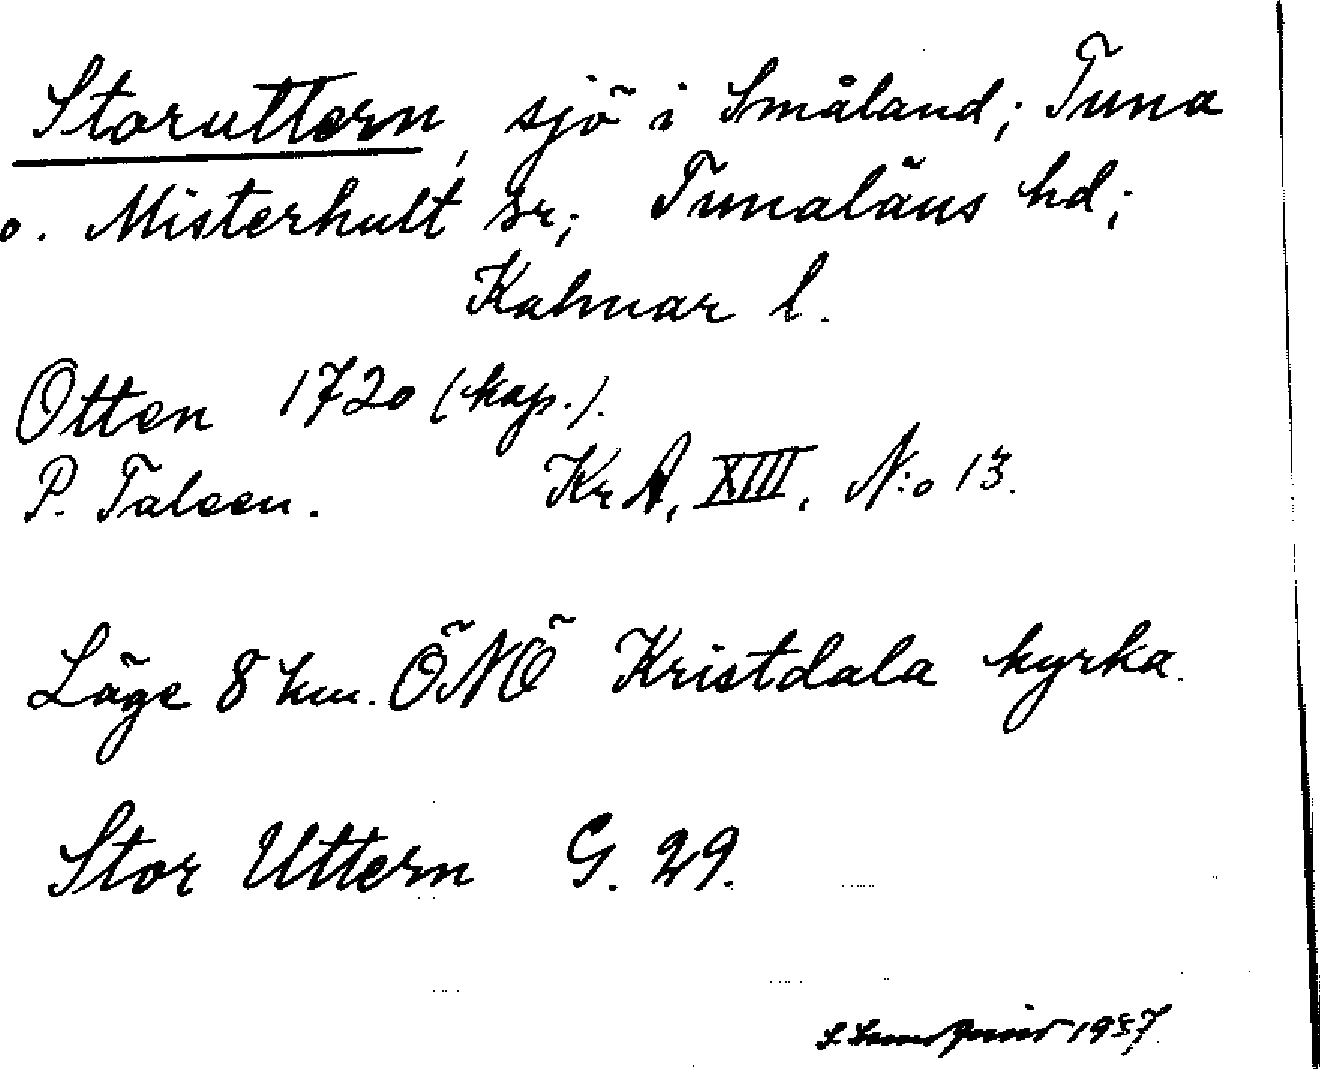 Storuttern, sjö i Småland; Tuna
o. Misterhult sr; Tunaläns hd;
Kalmar l.
Otten 1720 (kap.).
P. Taleen. Kr A, XIII, N:o 13.
Läge 8 km. ÖNÖ Kristdala kyrka.
Stor Uttern G. 29.
1937